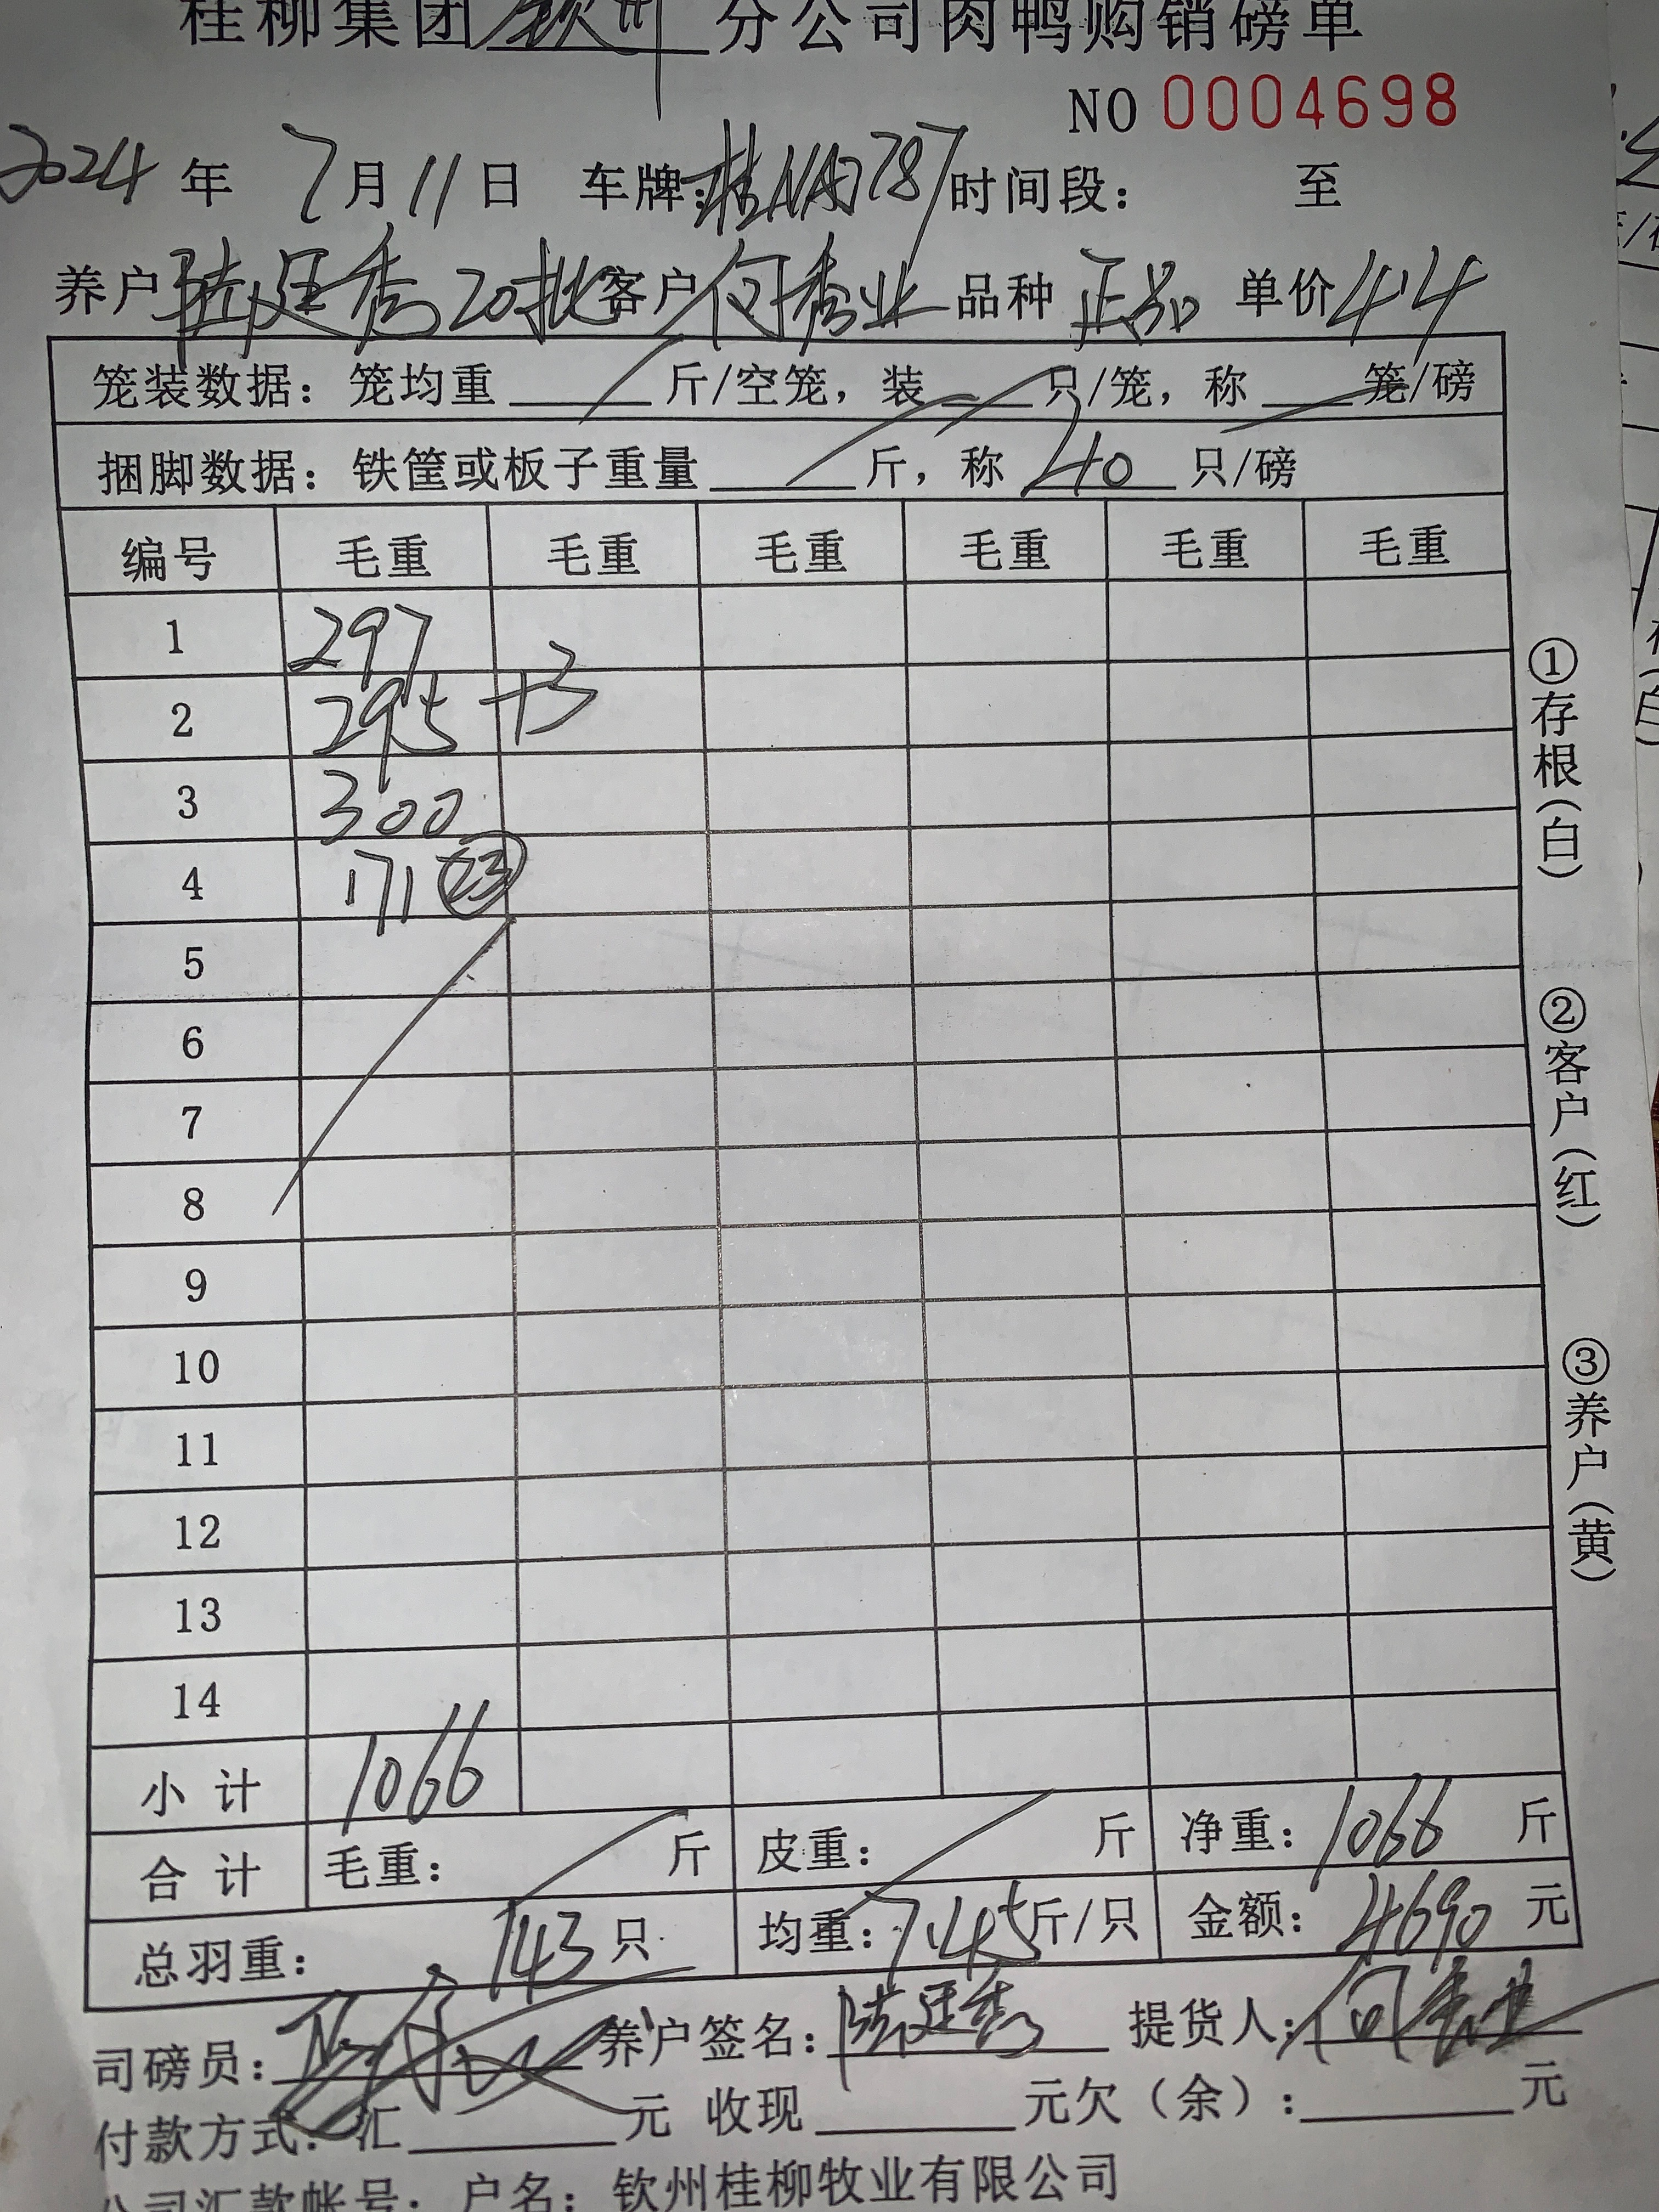 桂柳集团钦州分公司肉鸭购销磅单
NO 0004698
2024年 7月11日 车牌:桂NA0787 时间段: 至
养户陆廷秀20批 客户何秀业 品种 正品 单价4.4
笼装数据: 笼均重 斤/空笼, 装 只/笼, 称 笼/磅
捆脚数据: 铁筐或板子重量 斤, 称 40 只/磅
编号 毛重 毛重 毛重 毛重 毛重 毛重
1 297
2 295 +3
3 300
4 171 23
5
6
7
8
9
10
11
12
13
14
小计 1066
合计 毛重: 斤 皮重: 斤 净重: 1066 斤
总羽重: 143只 均重: 7.45斤/只 金额: 4690元
司磅员: 养户签名: 陆廷秀 提货人: 何秀业
付款方式: 汇 元 收现 元欠(余): 元
公司汇款帐号: 户名: 钦州桂柳牧业有限公司
①存根(白)
②客户(红)
③养户(黄)